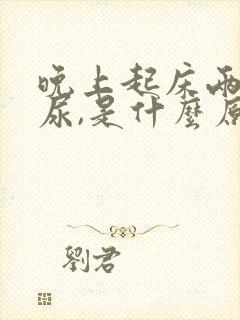 晚上起床兩
尿,是什麼原
劉君